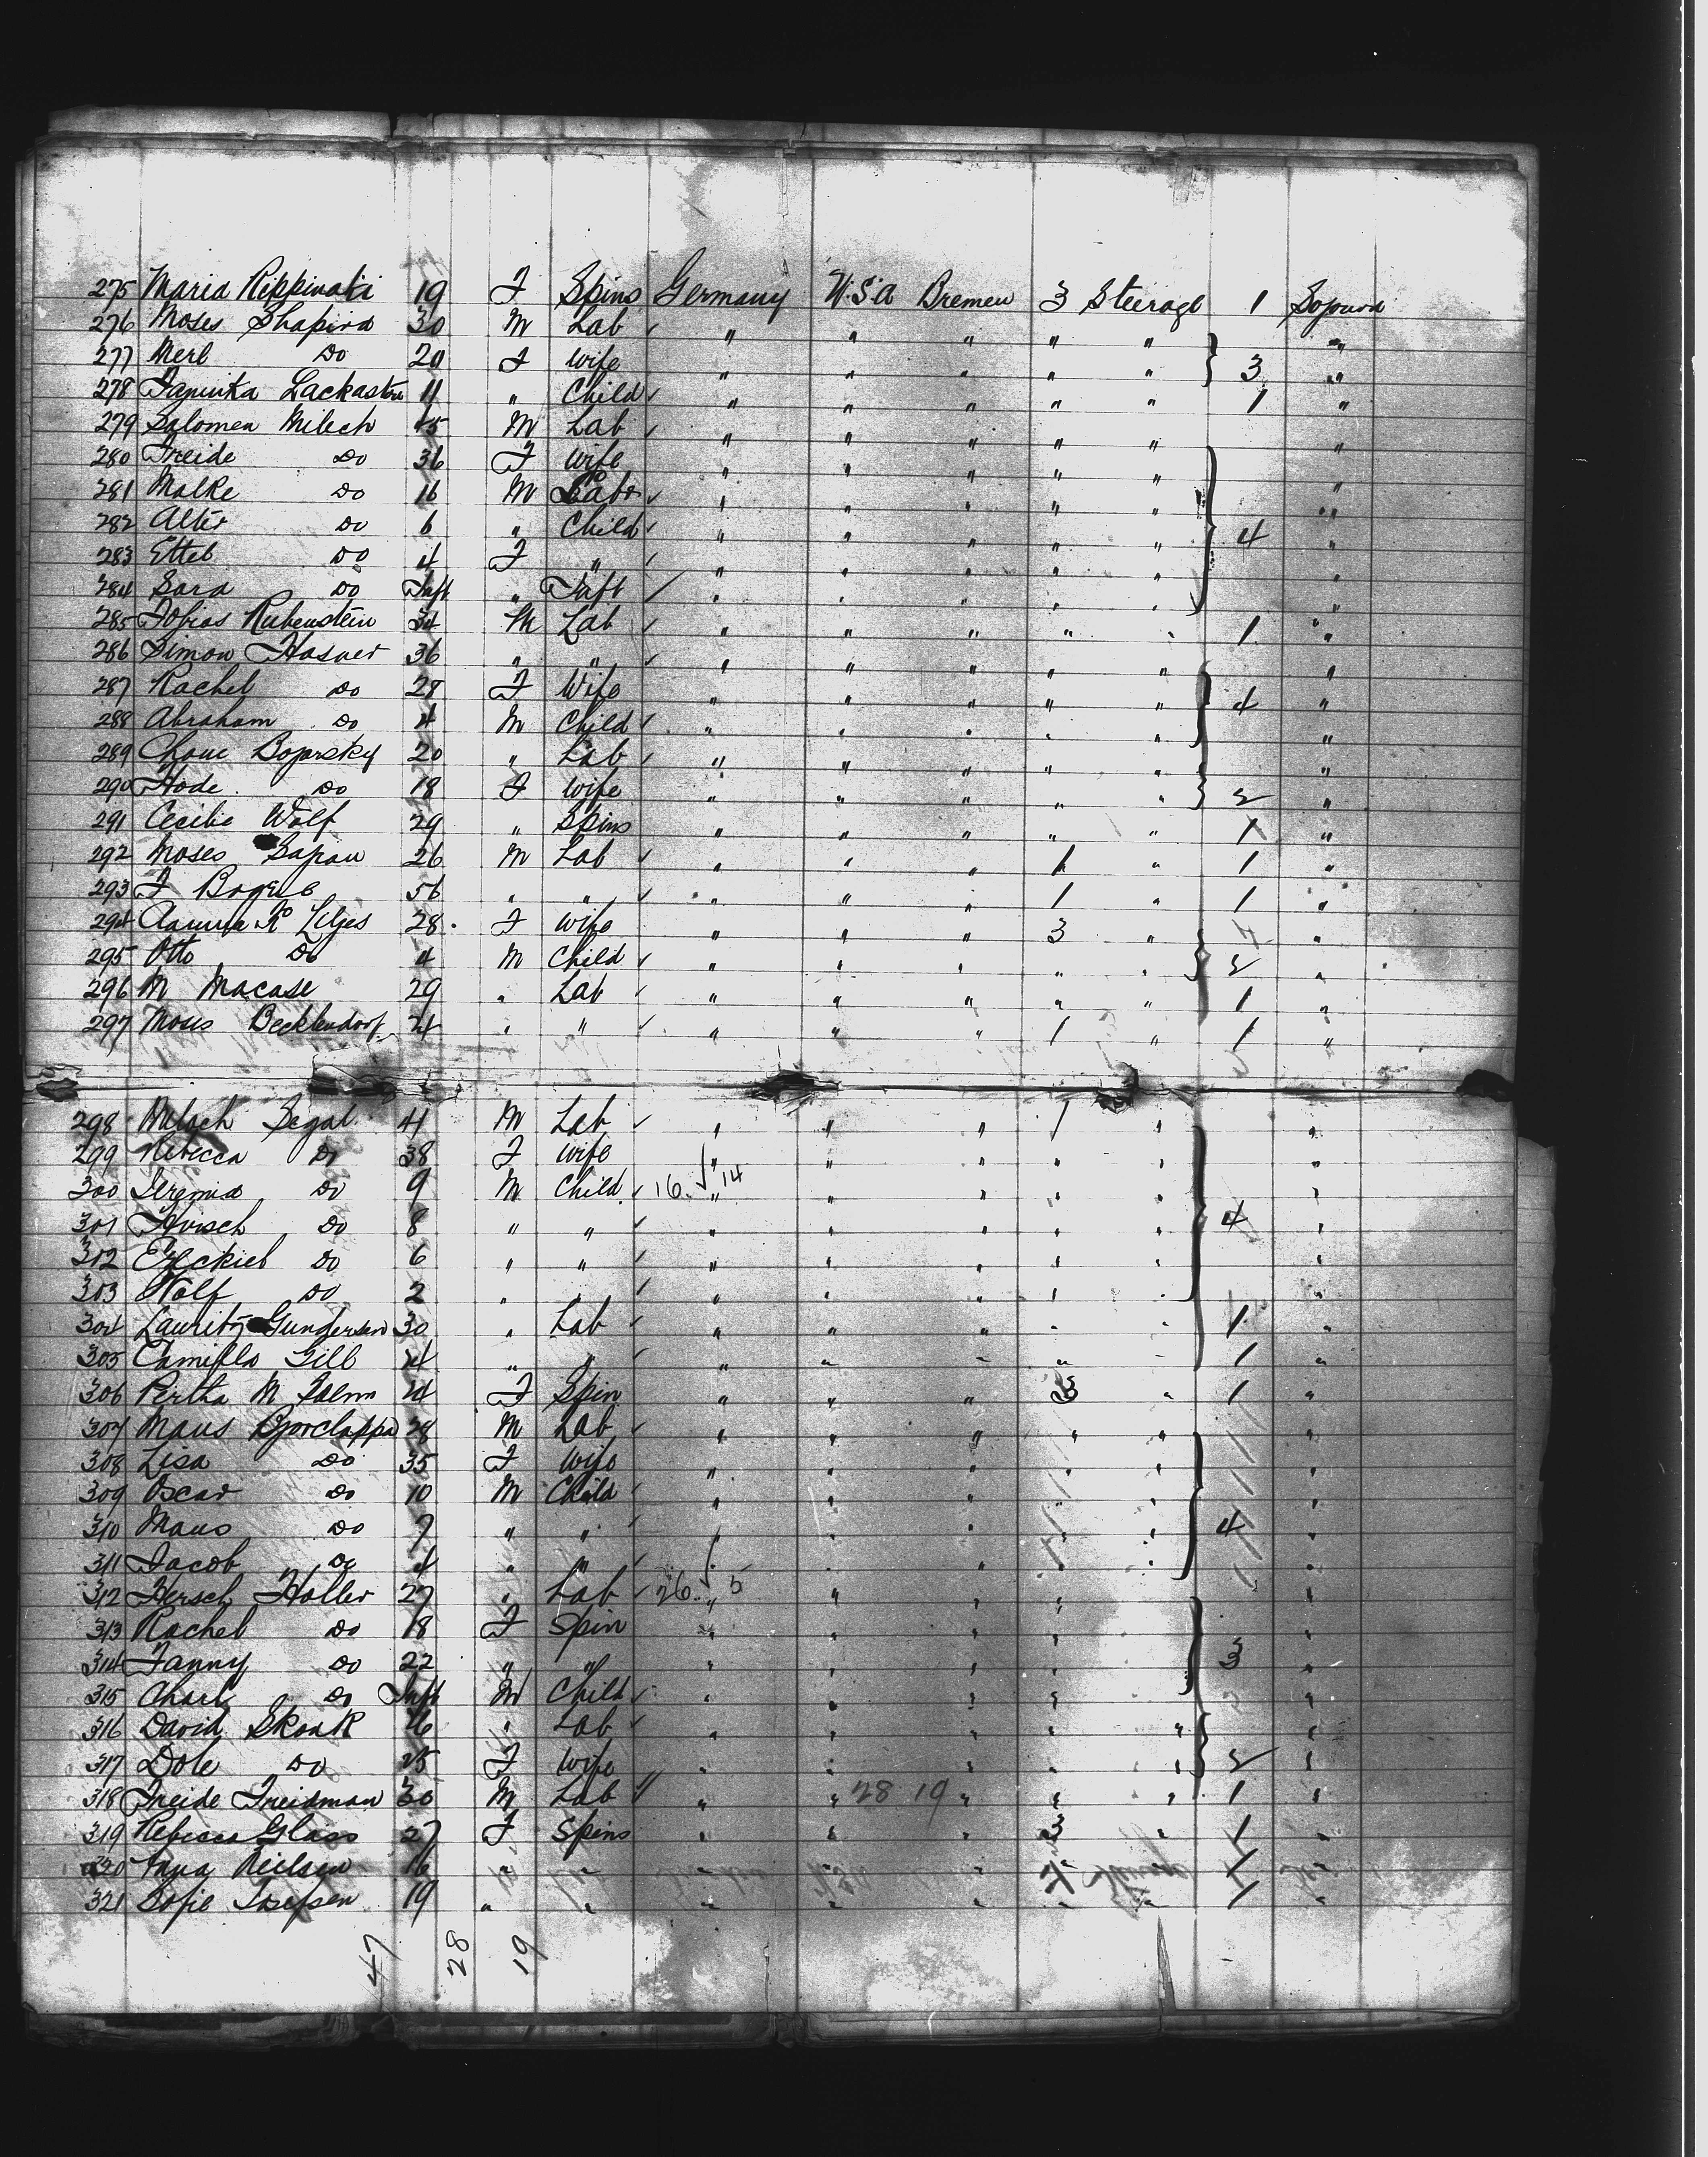 275 Maria Rippinaki 19 F Spins Germany U.S.A Bremen 3 Steerage 1 Sojourn
276 Moses Shapira 30 M Lab " " " " " "
277 Merl Do 20 F Wife " " " " " 3 "
278 Lackaston 11 " Child " " " " " 1 "
279 Salomen Milech 45 M Lab " " " " " "
280 Freide Do 36 F Wife " " " " " "
281 Malke Do 16 M Labr " " " " " "
282 Alter Do 6 " Child " " " " " 4 "
283 Etteb Do 4 F " " " " " " "
284 Sara Do Inft " Inft " " " " " "
285 Tobias Rubenstein 34 M Lab " " " " " 1 "
286 Simon Hasner 36 " " " " " " " "
287 Rachel Do 28 F Wife " " " " " 4 "
288 Abraham Do 4 M Child " " " " " "
289 Chone Bojarsky 20 " Lab " " " " " "
290 Hode Do 18 F Wife " " " " " 2 "
291 Cecilie Wolf 29 " Spins " " " " " 1 "
292 Moses Sapran 26 M Lab " " " 1 " 1 "
293 F 56 " " " " " 1 " 1 "
294 28 F Wife " " " 3 " "
295 Otto Do 4 M Child " " " " " 2 "
296 M Macase 29 " Lab " " " " " 1 "
297 Moses Becklendorf 24 " " " " " 1 " 1 "
298 Meloch Segal 41 M Lab " " " 1 " "
299 Rebecca Do 38 F Wife " " " " " "
300 Jeremia Do 9 M Child 16 14 " " " " " "
301 Hirsch Do 8 " " " " " " " 4 "
302 Ezeckieb Do 6 " " " " " " " "
303 Wolf Do 2 " " " " " " " "
304 Lauritz Gundersen 30 " Lab " " " " " 1 "
305 Camillo Gill 24 " " " " " " " 1 "
306 Pertha M 24 F Spin " " " 3 " 1 "
307 Maus Bjorclappa 28 M Lab " " " " " "
308 Lisa Do 35 F Wife " " " " " "
309 Oscar Do 10 M Child " " " " " "
310 Maus Do 7 " " " " " " " 4 "
311 Jacob Do 4 " " " " " " " "
312 Hersch Holler 27 " Lab 26 5 " " " " "
313 Rachel Do 18 F Spin " " " " "
314 Fanny Do 22 " " " " " " 3 "
315 Charl Do Inft M Child " " " " "
316 David Skoak 26 " Lab " " " " " "
317 Dole Do 25 F Wife " " " " " 2 "
318 Freide Freidman 30 M Lab " " 28 19 " " " 1 "
319 Rebecca Glass 27 F Spins " " " 3 " 1 "
320 Neilsen 16 " " " " " " " 1 "
321 Sofie Josefsen 19 " " " " " " " 1 "
47 28 19